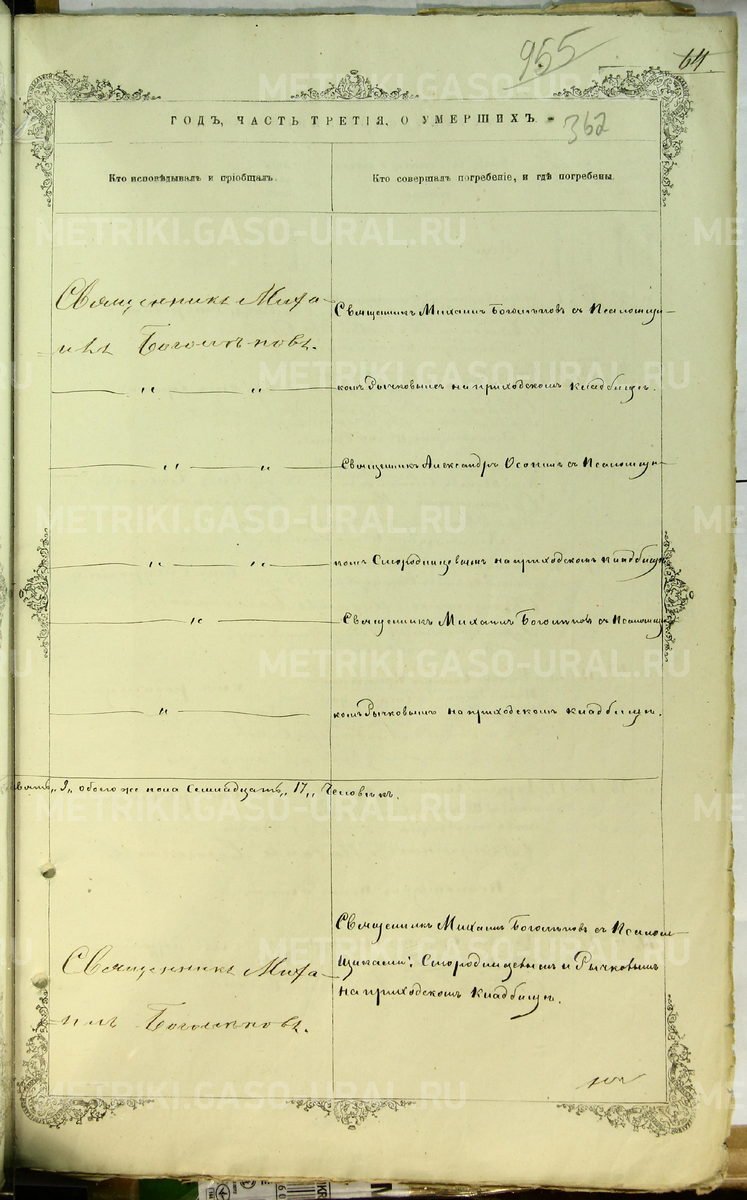 955
64
ГОДЪ, ЧАСТЬ ТРЕТІЯ, О УМЕРШИХЪ.
362
Кто исповѣдывалъ и пріобщалъ.
Кто совершалъ погребеніе, и гдѣ погребены.
Священникъ Миха-
илъ Боголѣповъ.
Священникъ Михаилъ Боголѣповъ съ Псаломщи-
комъ Рычковымъ на приходскомъ кладбищѣ.
Священникъ Александръ Осиповъ съ Псаломщи-
комъ Смородинцевымъ на приходскомъ кладбищѣ.
Священникъ Михаилъ Боголѣповъ съ Псаломщи-
комъ Рычковымъ на приходскомъ кладбищѣ.
"9" обоего же пола семнадцать "17" человѣкъ.
Священникъ Миха-
илъ Боголѣповъ.
Священникъ Михаилъ Боголѣповъ съ Псалом-
щиками: Смородинцевымъ и Рычковымъ
на приходскомъ кладбищѣ.
METRIKI.GASO-URAL.RU